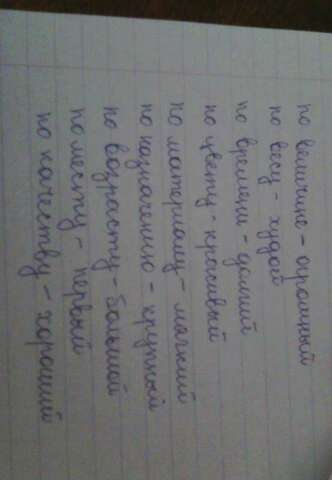 по величине - огромный
по весу - худой
по времени - долгий
по цвету - красивый
по материалу - мягкий
по назначению - крупный
по возрасту - большой
по месту - первый
по качеству - хороший